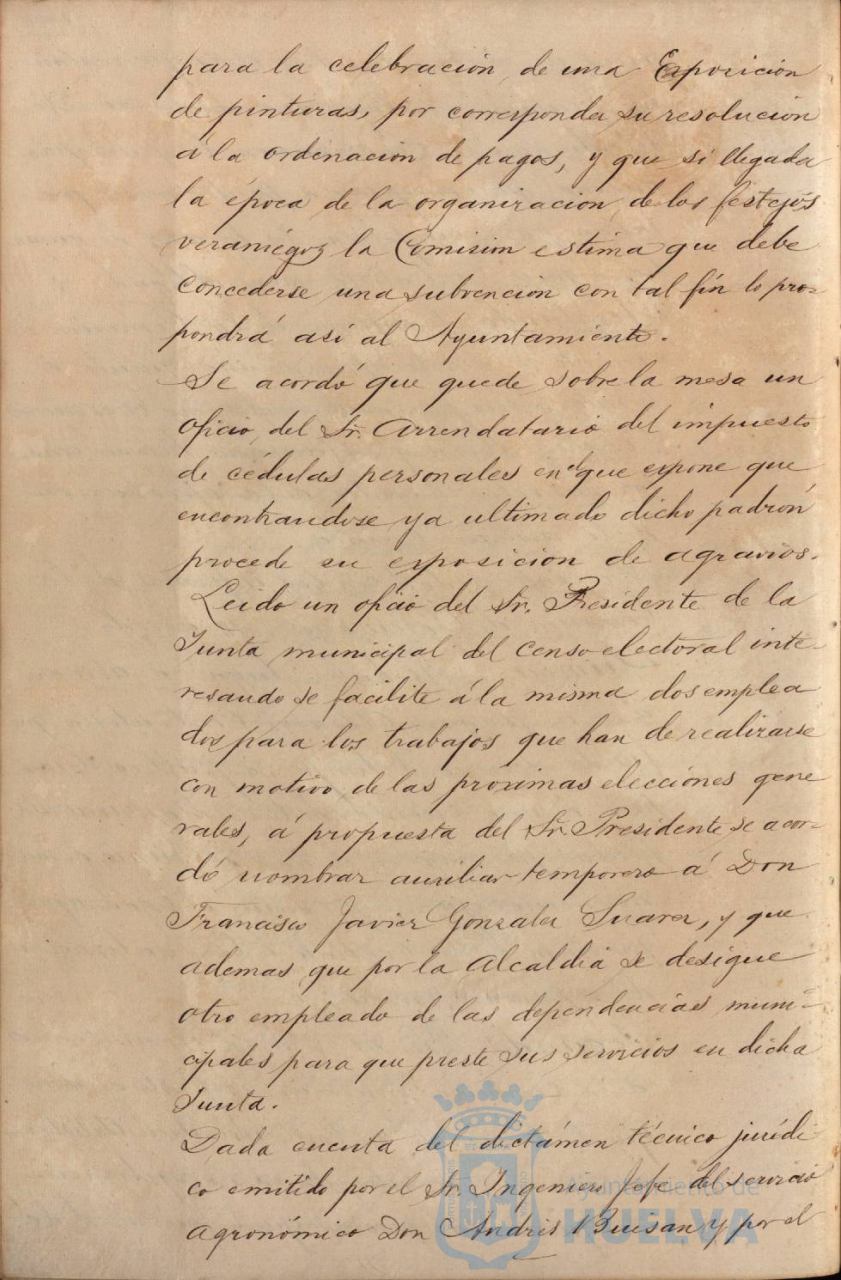 para la celebración de una Exposición
de pinturas, por corresponder su resolución
á la ordenación de pagos, y que si llegada
la época de la organizacion de los festejos
veraniegos la Comision estima que debe
concederse una subvencion con tal fin lo pro-
pondrá así al Ayuntamiento.
Se acordó que quede sobre la mesa un
oficio del Sr. Arrendatario del impuesto
de cédulas personales en el que expone que
encontrandose ya ultimado dicho padrón
procede su exposicion de agravios.
Leido un oficio del Sr. Presidente de la
Junta municipal del censo electoral inte-
resando se facilite á la misma dos emplea
dos para los trabajos que han de realizarse
con motivo de las proximas elecciones gene
rales, á propuesta del Sr. Presidente se acor-
dó nombrar auxiliar temporero á Don
Francisco Javier Gonzalez Suarez, y que
ademas que por la Alcaldia se desigue
otro empleado de las dependencias muni-
cipales para que preste sus servicios en dicha
Junta.
Dada cuenta del dictámen técnico jurídi
co emitido por el Sr. Ingeniero Jefe del servicio
agronómico Don Andrés Buisan y por el
Ayuntamiento de
HUELVA